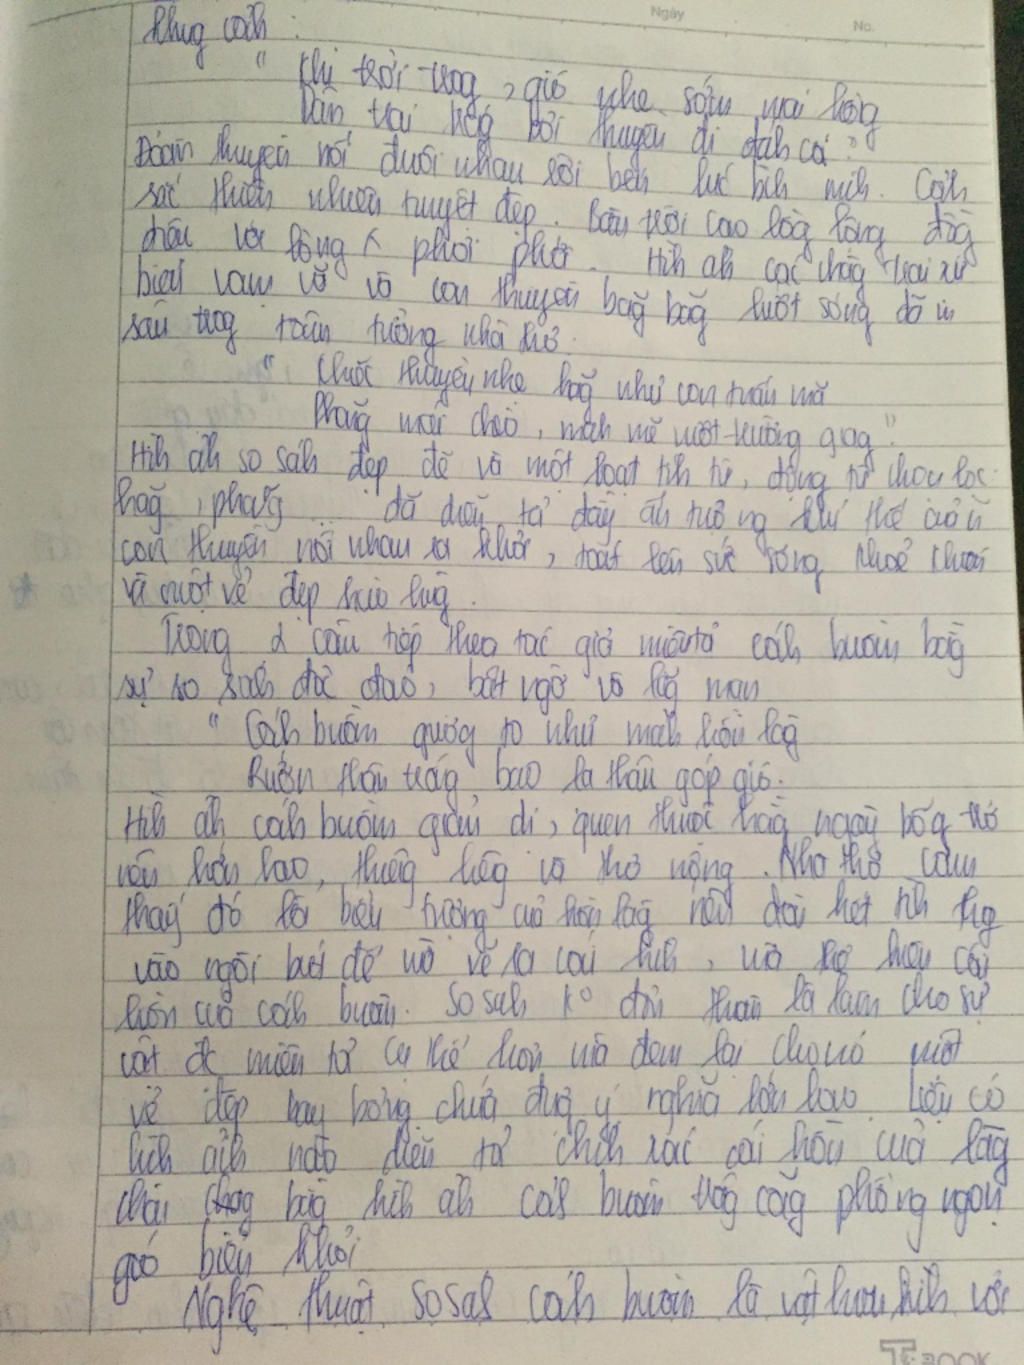 Ngày
No.
khug cảnh :
" Khi trời trog, gió nhẹ sớm mai hồng
Dân trai tráng bơi thuyền đi đáh cá"
Đoàn thuyền nối đuôi nhau rời bến lúc bìh mih. Cảnh
sắc thiên nhiên tuyệt đẹp. Bầu trời cao lồg lộng
với lòng phơi phới. Hìh ảh các chàg trai xứ
biển vạm vỡ và con thuyền băg băg lướt sóng đã in
sâu trog tâm tưởng nhà thơ.
" Chiếc thuyền nhẹ hăg như con tuấn mã
Phăg mái chèo, mạh mẽ vượt trường giag"
Hìh ảh so sáh đẹp đẽ và một loạt tíh từ, động từ chọn lọc:
hăg, phăg đã diễn tả đầy ấn tượng khí thế của n
con thuyền nối nhau ra khơi, toát lên sức sống khoẻ khoắn
và một vẻ đẹp hào hùg.
Trong 2 câu tiếp theo tác giả miêu tả cáh buồm bằg
sự so sáh độc đáo, bất ngờ và lãg mạn
" Cáh buồm giương to như mảh hồn làg
Rướn thân trắg bao la thâu góp gió.
Hìh ảh cáh buồm giản dị, quen thuộc hàg ngày bỗg trở
nên lớn lao, thiêg liêg và thơ mộng. Nhà thơ cảm
thấy đó là biểu tượng của hồn làg nên dồn hết tìh
vào ngòi bút để vừa vẽ ra cái hìh, vừa cái
hồn của cáh buồm. So sáh ko đơn thuần là làm cho sự
vật đc miêu tả cụ thể hơn mà đem lại cho nó một
vẻ đẹp bay bổng chứa đựg ý nghĩa lớn lao. Liệu có
hìh ảh nào diễn tả chíh xác cái hồn của làg
chài bằg hìh ảh cáh buồm trắg căg phồng ngọn
gió biển khơi
Nghệ thuật so sáh cáh buồm là vật hữu hìh với